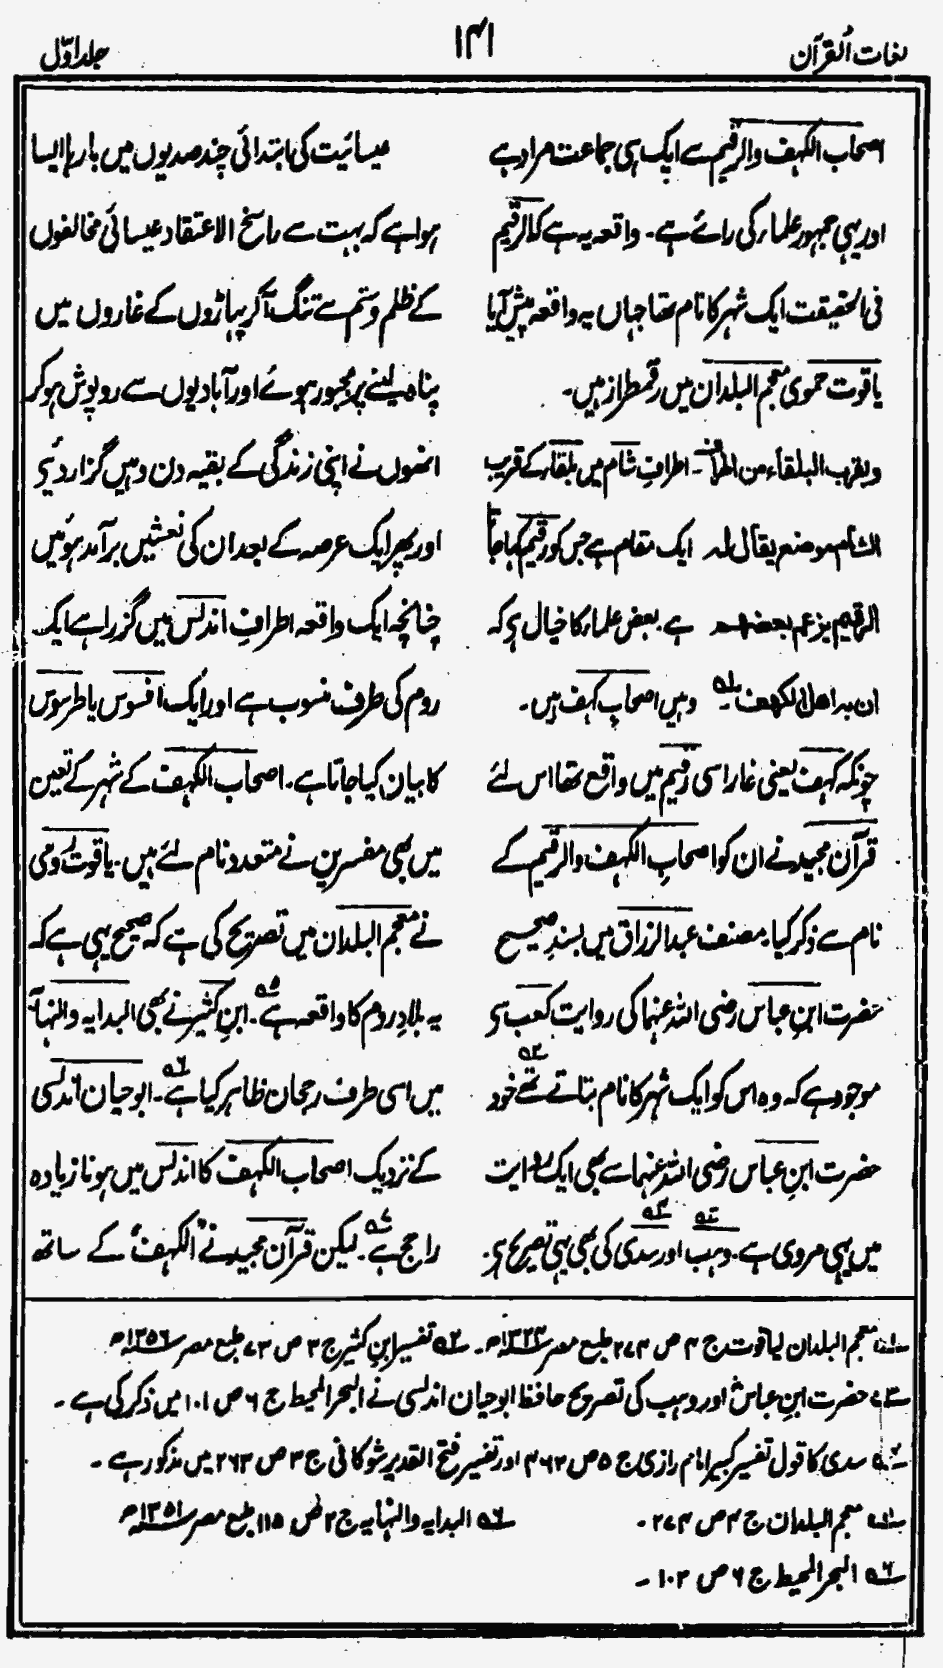 لغات القرآن
۱۴۱
جلد اوّل
اصحاب الکہف والرقیم سے ایک ہی جماعت مراد ہے
اور یہی جمہور علماء کی رائے ہے۔ واقعہ یہ ہے کہ الرقیم
فی الحقیقت ایک شہر کا نام تھا جہاں یہ واقعہ پیش آیا
یاقوت حموی معجم البلدان میں رقمطراز ہیں۔
وبقرب البلقاء من اطراف ۔ اطرافِ شام میں بلقاء کے قریب
الشام موضع یقال لہ ایک مقام ہے جس کو رقیم کہا جاتا
الرقیم یزعم بعضہم ہے بعض علماء کا خیال ہے کہ
ان بہ اھل الکھف ۔ ۱ وہیں اصحاب کہف ہیں۔
چونکہ کہف یعنی غار اسی رقیم میں واقع تھا اس لئے
قرآن مجید نے ان کو اصحابِ الکہف والرقیم کے
نام سے ذکر کیا۔ مصنف عبدالرزاق میں بسندِ صحیح
حضرت ابنِ عباس رضی اللہ عنہما کی روایت کعب سے
موجود ہے کہ وہ اس کو ایک شہر کا نام بتاتے تھے ۲ خود
حضرت ابنِ عباس رضی اللہ عنہما سے بھی ایک روایت
میں یہی مروی ہے۔ وہب ۳ اور سدی ۴ کی بھی یہی تصریح ہے۔
عیسائیت کی ابتدائی چند صدیوں میں بارہا ایسا
ہوا ہے کہ بہت سے راسخ الاعتقاد عیسائی مخالفوں
کے ظلم و ستم سے تنگ آکر پہاڑوں کے غاروں میں
پناہ لینے پر مجبور ہوئے اور آبادیوں سے روپوش ہو کر
انھوں نے اپنی زندگی کے بقیہ دن وہیں گزار دیئے
اور پھر ایک عرصہ کے بعد ان کی نعشیں برآمد ہوئیں
چنانچہ ایک واقعہ اطرافِ اندلس میں گزرا ہے ایک
روم کی طرف منسوب ہے اور ایک افسوس یا طرسوس
کا بیان کیا جاتا ہے۔ اصحاب الکہف کے شہر کے تعین
میں بھی مفسرین نے متعدد نام لئے ہیں۔ یاقوت رومی
نے معجم البلدان میں تصریح کی ہے کہ صحیح یہی ہے کہ
یہ بلادِ روم کا واقعہ ہے ۵ ۔ ابنِ کثیر نے بھی البدایہ والنہایہ
میں اسی طرف رجحان ظاہر کیا ہے ۶ ۔ ابو حیان اندلسی
کے نزدیک اصحاب الکہف کا اندلس میں ہونا زیادہ
راجح ہے ۷ ۔ لیکن قرآن مجید نے "الکہف" کے ساتھ
۱ معجم البلدان لیاقوت ج ۴ ص ۲۷۴ طبع مصر ۱۳۲۴ھ ۔ ۲ تفسیر ابنِ کثیر ج ۳ ص ۷۳ طبع مصر ۱۳۵۶ھ
۳ حضرت ابنِ عباسؓ اور وہب کی تصریح حافظ ابو حیان اندلسی نے البحر المحیط ج ۶ ص ۱۰۱ میں ذکر کی ہے ۔
۴ سدی کا قول تفسیر کبیر امام رازی ج ۵ ص ۴۶۳ اور تفسیر فتح القدیر شوکانی ج ۳ ص ۲۶۳ میں مذکور ہے ۔
معجم البلدان ج ۴ ص ۲۷۴ ۔ البدایہ والنہایہ ج ۲ ص ۱۱۵ طبع مصر ۱۳۵۱ھ
البحر المحیط ج ۶ ص ۱۰۲ ۔